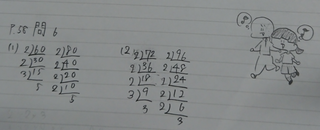 P.55 問 6
(1) 2)60 2)80
2)30 2)40
3)15 2)20
5 2)10
5
(2 2)72 2)96
2)36 2)48
2)18 2)24
3)9 2)12
3 2)6
3